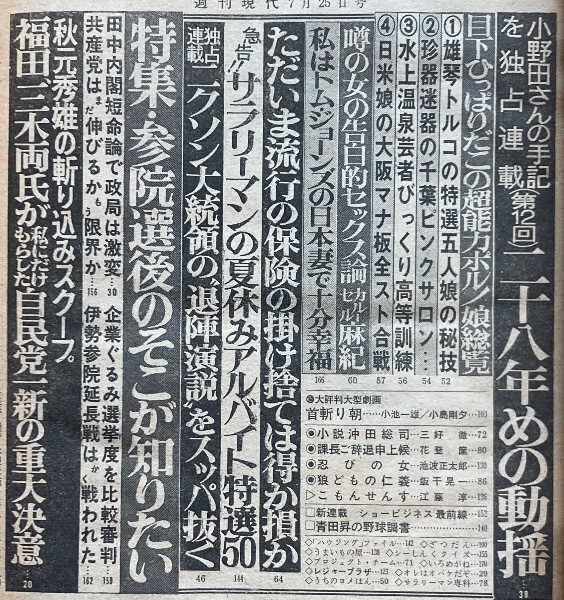 週刊現代7月25日号
小野田さんの手記
を独占連載(第12回)
二十八年めの動揺 …38
目下ひっぱりだこの超能力ポルノ娘総覧
①雄琴トルコの特選五人娘の秘技 52
②珍器迷器の千葉ピンクサロン… 54
③水上温泉芸者びっくり高等訓練 56
④日米娘の大阪マナ板全スト合戦 87
噂の女の告白的セックス論 カルーセル麻紀 60
私はトムジョーンズの日本妻で十分幸福 166
ただいま流行の保険の掛け捨ては得か損か 64
急告!!サラリーマンの夏休みアルバイト特選50 144
独占連載 ニクソン大統領の“退陣演説”をスッパ抜く 46
特集・参院選後のそこが知りたい
田中内閣短命論で政局は激変…30
企業ぐるみ選挙度を比較審判 159
共産党はまだ伸びるかもう限界か…156
伊勢参院延長戦はかく戦われた 162
秋元秀雄の斬り込みスクープ。
福田、三木両氏が私にだけもらした自民党一新の重大決意 …20
大評判大型劇画
首斬り朝……小池一雄/小島剛夕…103
◉小説沖田総司…三好 徹…72
◉課長ご辞退申上候…花登 筐…80
◉忍びの女…池波正太郎…130
◉狼どもの仁義…飯干晃一…86
▷こもんせんす…江藤 淳…136
□新連載 ショービジネス最前線…152
□青田昇の野球調書…140
◇「ハウジング」ファイル…142 ◇ざつだん…100
◇うまいもの屋…138 ◇シーしんくクイズ…155
◇プロジェクト・チーム…71 ◇いろめがね…170
◇レジャープラザ…123 ◇オレはオバケだぞ…29
◇うちのヨメはん…50 ◇サラリーマン専科…78